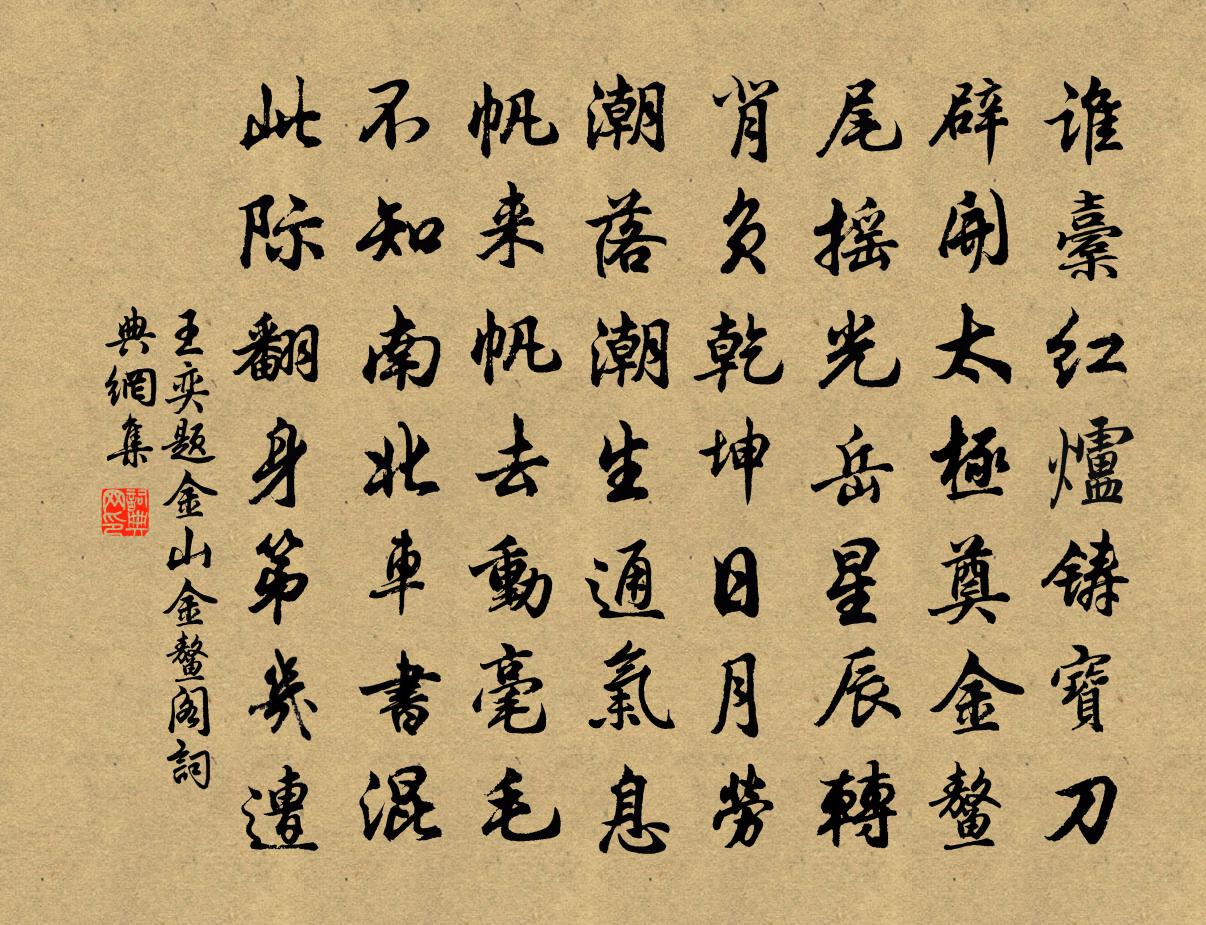 谁橐红爐铸寶刀
辟開太極奠金鳌
尾摇光岳星辰轉
背负乾坤日月勞
潮落潮生通氣息
帆来帆去動毫毛
不知南北車書混
此际翻身第幾遭
王奕题金山金鳌阁詞
典網集
詞典
网印